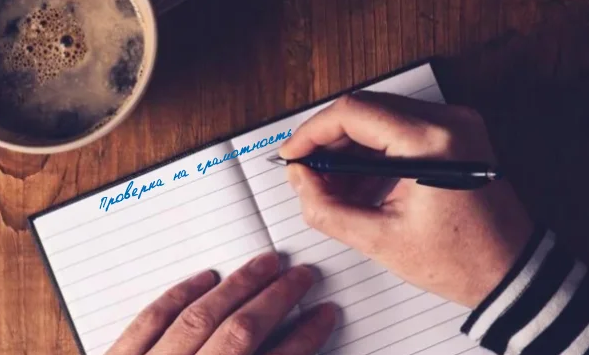 Проверка на грамотность